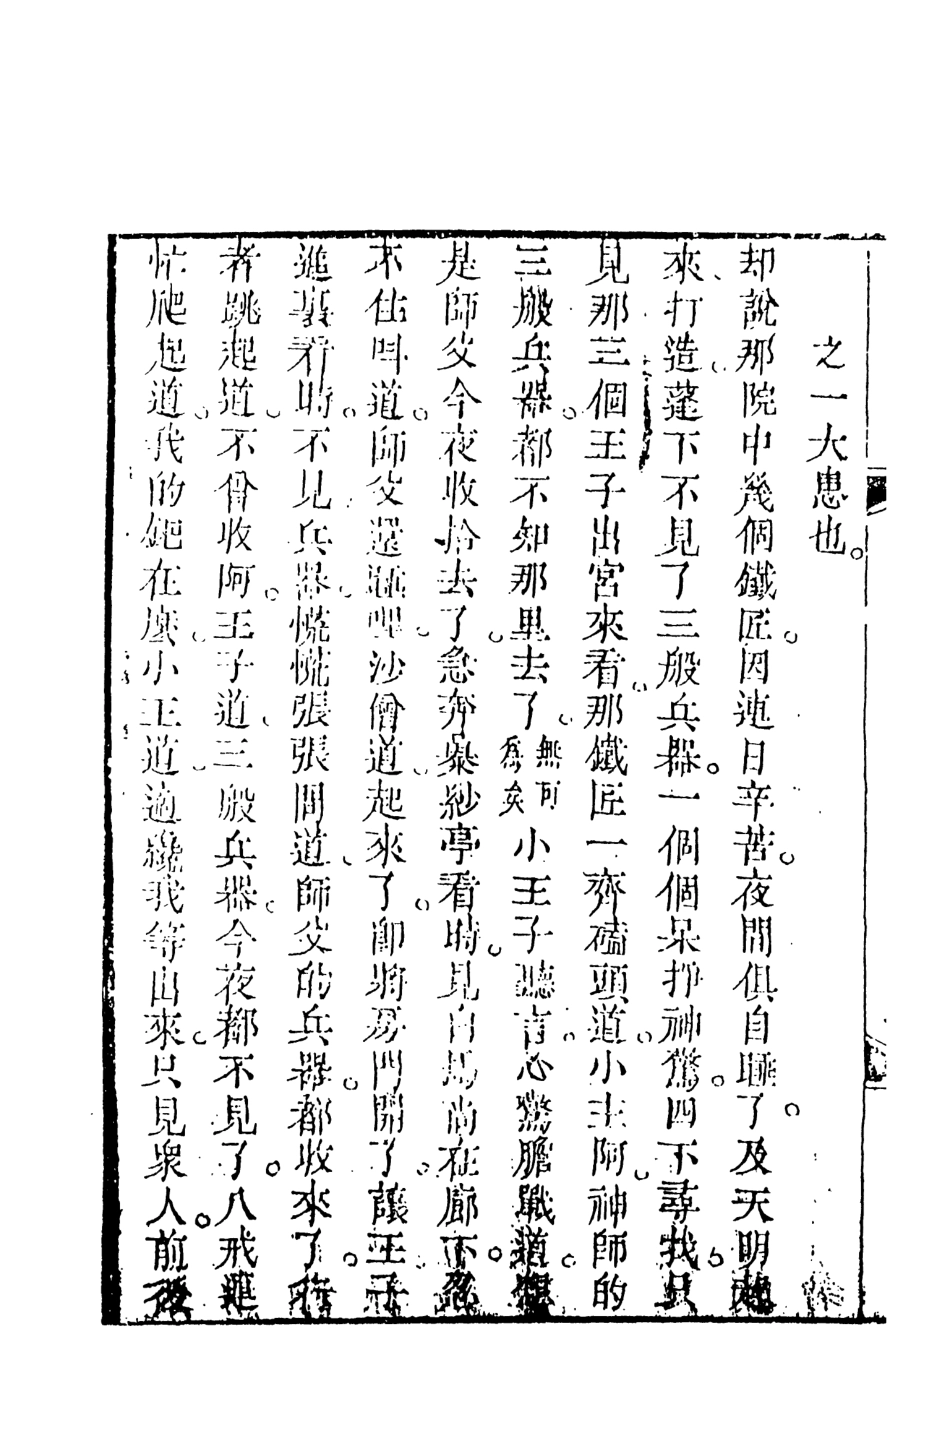 之一大患也。
却說那院中幾個鐵匠。因連日辛苦。夜間俱自睡了。及天明起
來、打造。蓬下不見了三般兵器。一個個呆掙神驚。四下尋找。只
見那三個王子出宮來看。那鐵匠一齊磕頭道。小主阿。神師的
三般兵器。都不知那里去了。無可爲矣小王子聽言。心驚膽戰道。想
是師父今夜收拾去了。急奔暴紗亭看時。見白馬尚在廊下。忍
不住叫道。師父還睡哩。沙僧道。起來了。卽將房門開了。讓王子
進裏看時。不見兵器。慌慌張張問道、師父的兵器。都收來了。行
者跳起道。不曾收阿。王子道、三般兵器。今夜都不見了。八戒連
忙爬起道。我的鈀在麼。小王道。適纔我等出來。只見衆人前後